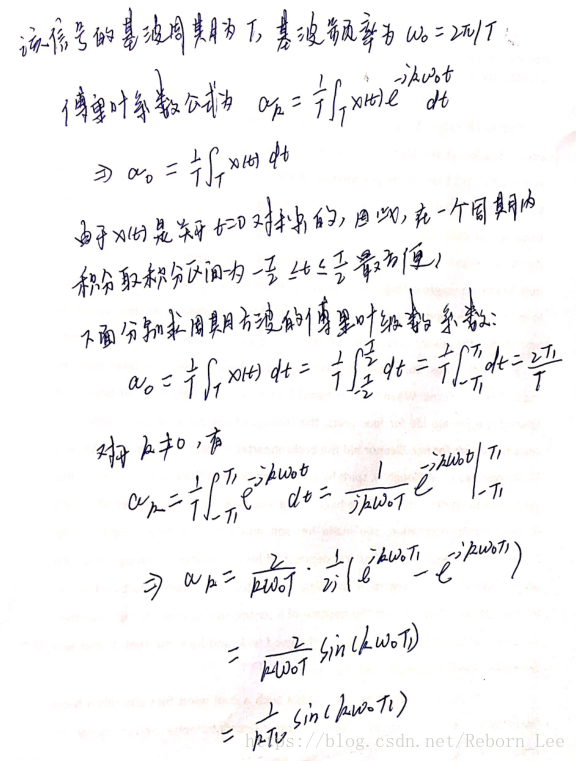 该信号的基波周期为T, 基波频率为 ω₀=2π/T.
傅里叶系数公式为 aₖ = 1/T ∫_T x(t) e^{-jkω₀t} dt
⇒ a₀ = 1/T ∫_T x(t) dt
由于x(t)是关于t=0对称的, 因此, 在一个周期内
积分取积分区间为 -T/2 ≤ t ≤ T/2 最方便,
下面分别求周期方波的傅里叶级数系数:
a₀ = 1/T ∫_T x(t) dt = 1/T ∫_{-T/2}^{T/2} dt = 1/T ∫_{-T₁}^{T₁} dt = 2T₁/T
对于 k≠0, 有
aₖ = 1/T ∫_{-T₁}^{T₁} e^{-jkω₀t} dt = 1/(jkω₀T) e^{-jkω₀t} |_{-T₁}^{T₁}
⇒ aₖ = 2/(kω₀T) · 1/2j (e^{jkω₀T₁} - e^{-jkω₀T₁})
= 2/(kω₀T) sin(kω₀T₁)
= 1/(kπ) sin(kω₀T₁)
https://blog.csdn.net/Reborn_Lee